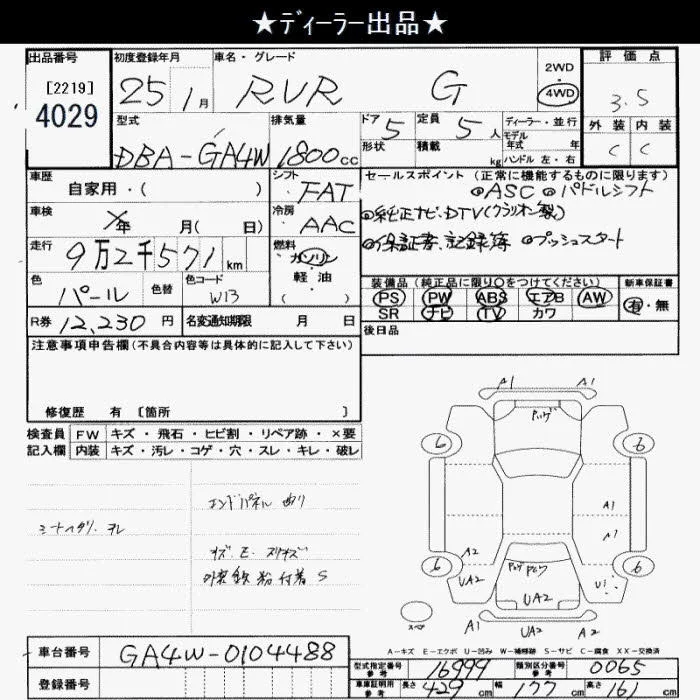 ★ディーラー出品★
出品番号 [2219] 4029
初度登録年月 25年 1月
車名・グレード RVR G
2WD・4WD
評価点 3.5
外装 C 内装 C
型式 DBA-GA4W
排気量 1800cc
ドア 5 定員 5人
形状 積載 kg
ディーラー・並行
モデル年式 年
ハンドル 左・右
車歴 自家用・( )
シフト FAT
セールスポイント (正常に機能するものに限ります)
◎ASC ◎パドルシフト
◎純正ナビ・DTV(クラリオン製)
◎保証書、記録簿 ◎プッシュスタート
車検 ×年 月( 日)
冷房 AAC
走行 9万2千571km
燃料 ガソリン 軽油 ( )
色 パール 色替 色コード W13
装備品 (純正品に限り○をつけてください) 新車保証書
PS PW ABS エアB AW 有・無
SR ナビ TV カワ
R券 12,230円 名変通知期限 月 日
後日品
注意事項申告欄(不具合内容等は具体的に記入して下さい)
修復歴 有 [箇所 ]
検査員 FW キズ・飛石・ヒビ割・リペア跡・×要
記入欄 内装 キズ・汚レ・コゲ・穴・スレ・キレ・破レ
エンドパネル 曲り
シートヘタリ・スレ
キズ E スリキズ
外装 鉄粉付着 S
A1 A1
6 6
A1
A1
A2
6 6
UA2 U1
UA2
A1 UA2 A2
スペア
A-キズ E-エクボ U-凹み W-補修跡 S-サビ C-腐食 XX-交換済
車台番号 GA4W-0104488
型式指定番号 参考 16999 類別区分番号 参考 0065
登録番号
車庫証明用 参考 長さ 429cm 幅 177cm 高さ 161cm